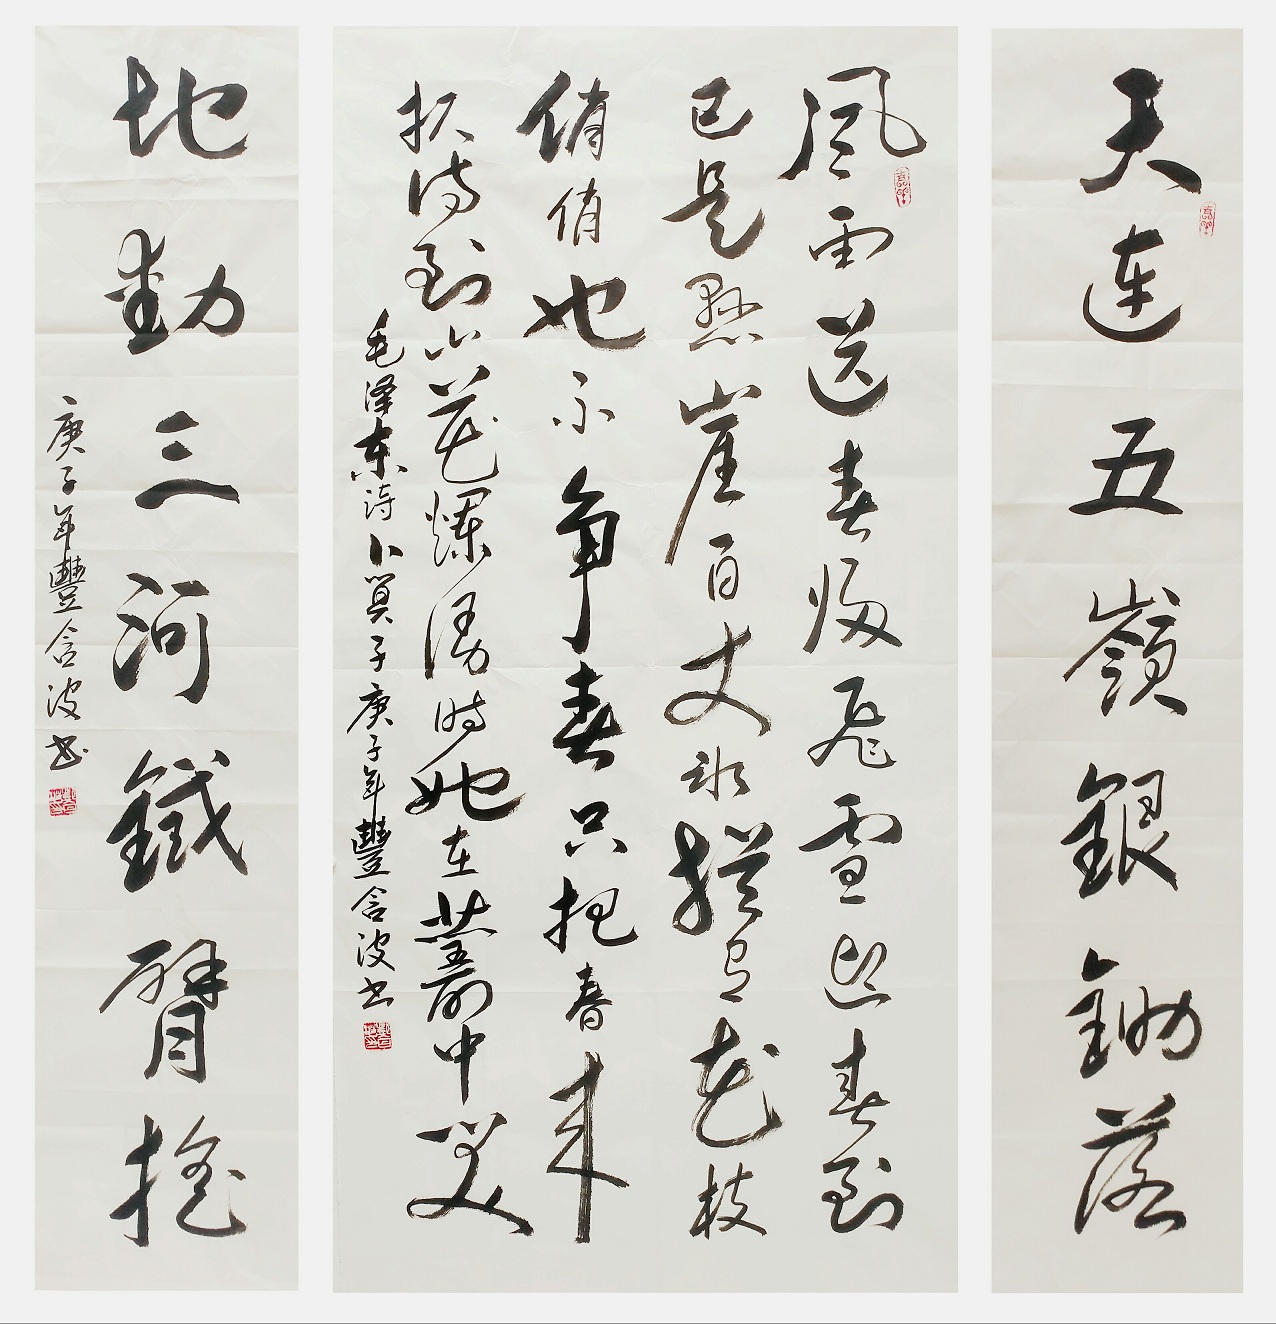 天连五嶺銀鋤落
風雨送春归飛雪迎春到
已是懸崖百丈冰猶有花枝
俏俏也不争春只把春来
报待到山花爛漫时她在叢中笑
毛泽东诗卜算子庚子年豐含波书
地動三河鐵臂摇
庚子年豐含波书